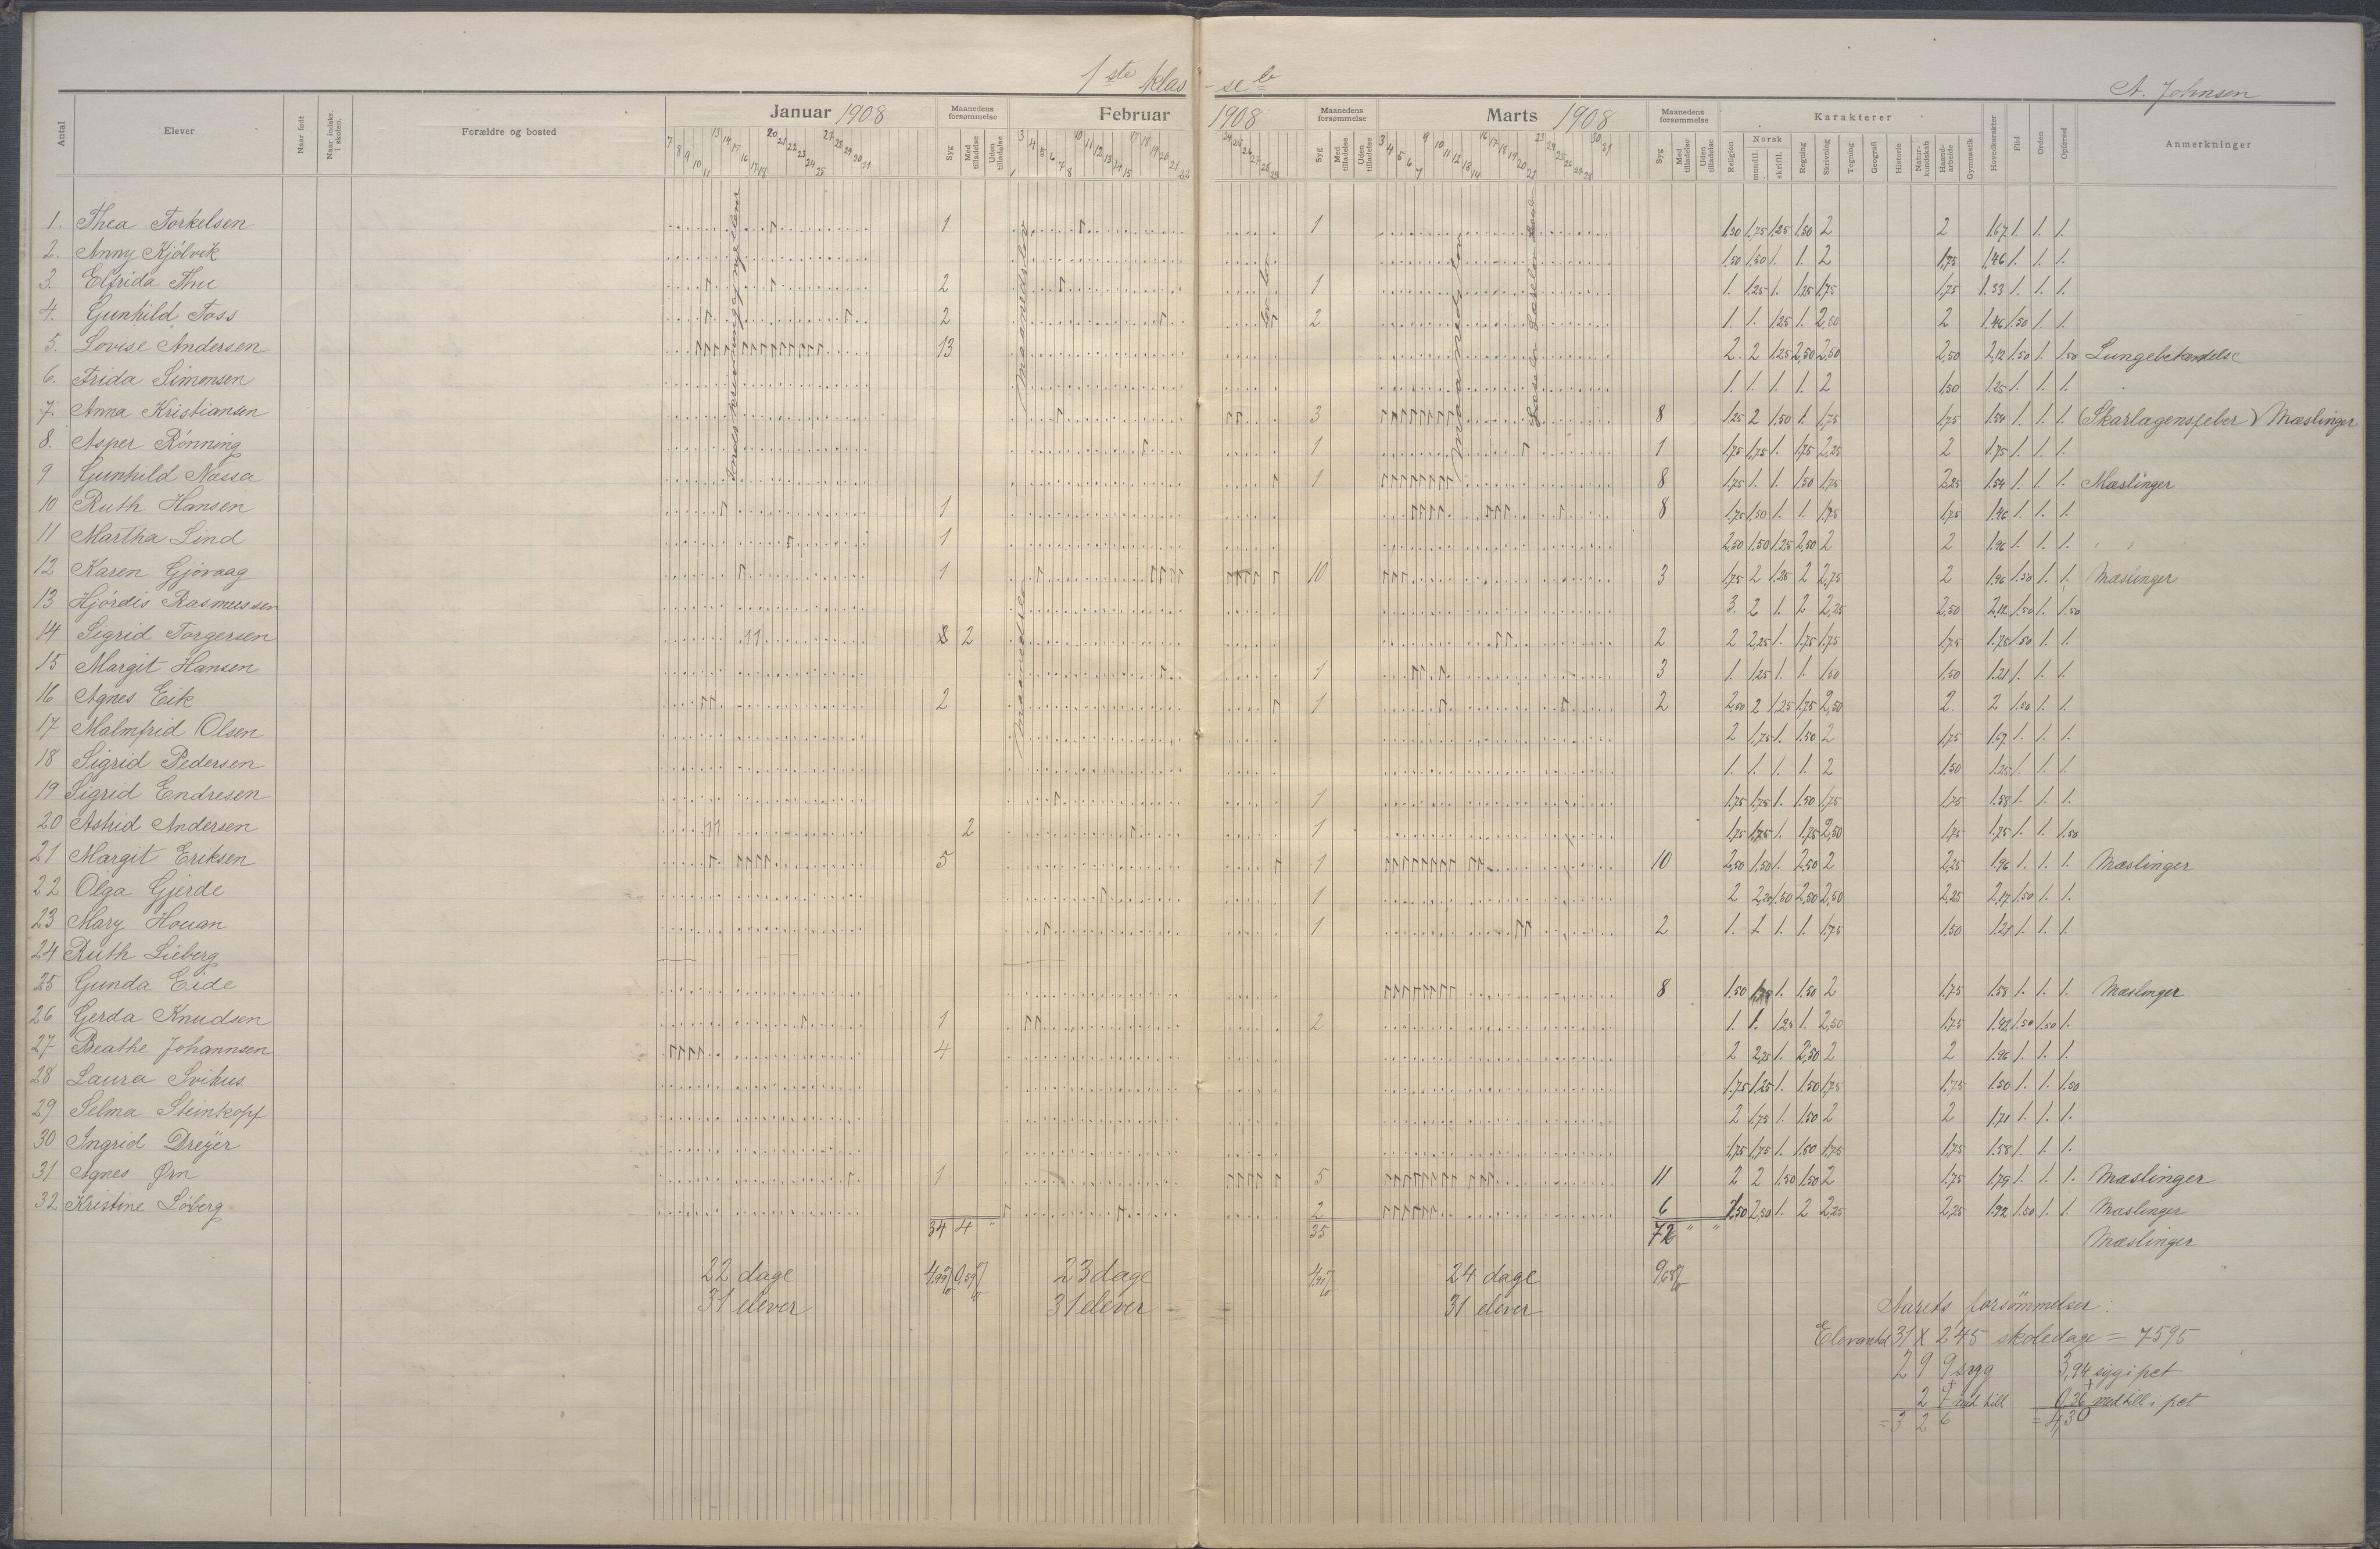 1ste klas - se b
A. Johnsen
Antal Elever Naar født Naar indskr. i skolen. Forældre og bosted Januar 1908 Maanedens forsømmelse Syg Med tilladelse Uden tilladelse Februar 1908 Maanedens forsømmelse Syg Med tilladelse Uden tilladelse Marts 1908 Maanedens forsømmelse Syg Med tilladelse Uden tilladelse Karakterer Religion Norsk mundtl. skriftl. Regning Skrivning Tegning Geografi Historie Natur-kundskab Haand-arbeide Gymnastik Hovedkarakter Flid Orden Opførsel Anmerkninger
7 8 9 10 11 13 14 15 16 17 18 20 21 22 23 24 25 27 28 29 30 31
1 3 4 5 6 7 8 10 11 12 13 14 15 17 18 19 20 21 22 24 25 26 27 28 29
3 4 5 6 7 9 10 11 12 13 14 16 17 18 19 20 21 23 24 25 26 27 28 30 31
Indskrivning af nye elever
Maanedslov
Maanedslov
Maanedslov
1. Thea Torkelsen 1 1 1,50 1,75 1,25 1,50 2 2 1,67 1. 1. 1.
2. Anny Kjölvik 1,50 1,50 1. 1. 2 1,75 1,46 1. 1. 1.
3. Elfrida Thu 2 1 1. 1,25 1. 1,25 1,75 1,75 1,33 1. 1. 1.
4. Gunhild Foss 2 2 1. 1. 1,25 1. 2,50 2 1,46 1,50 1. 1.
5. Lovise Andersen 13 2. 2 1,25 2,50 2,50 2,50 2,12 1,50 1. 1,50 Lungebetændelse
6. Frida Simonsen 1. 1. 1. 1. 2 1,50 1,25 1. 1. 1.
7. Anna Kristiansen 3 8 1,25 2 1,50 1. 1,75 1,75 1,54 1. 1. 1. (Skarlagensfeber) Mæslinger
8. Asper Rönning 1 1 1,75 1,75 1. 1,75 2,25 2 1,75 1. 1. 1.
9 Gunhild Næssa 1 8 1,75 1. 1. 1,50 1,75 2,25 1,54 1. 1. 1. Mæslinger
10 Ruth Hansen 1 8 1,75 1,50 1. 1. 1,75 1,75 1,46 1. 1. 1.
11 Martha Lind 1 2,50 1,50 1,25 2,50 2 2 1,96 1. 1. 1.
12 Karen Gjövaag 1 10 3 1,75 2 1,25 2 2,75 2 1,96 1,50 1. 1. Mæslinger
13 Hjördis Rasmussen 3. 2 1. 2 2,25 2,50 2,12 1,50 1. 1,50
14 Sigrid Torgersen 2 2 2 2,25 1. 1,75 1,75 1,75 1,75 1,50 1. 1.
15 Margit Hansen 1 3 1. 1,25 1. 1. 1,50 1,50 1,21 1. 1. 1.
16 Agnes Eik 2 1 2 2,50 2 1,25 1,75 2,50 2. 2 1,50 1. 1.
17 Malmfrid Olsen 2 1,75 1. 1,50 2 1,75 1,67 1. 1. 1.
18 Sigrid Pedersen 1. 1. 1. 1. 2 1,50 1,25 1. 1. 1.
19 Sigrid Endresen 1 1,75 1,75 1. 1,50 1,75 1,75 1,58 1. 1. 1.
20 Astrid Andersen 2 1 1,75 1,75 1. 1,75 2,50 1,75 1,75 1. 1. 1,50
21 Margit Eriksen 5 1 10 2,50 1,50 1. 2,50 2 2,25 1,96 1. 1. 1. Mæslinger
22 Olga Gjerde 1 2 2,25 1,50 2,50 2,50 2,25 2,17 1,50 1. 1.
23 Mary Houan 1 2 1. 1. 1. 1. 1,75 1,50 1,21 1. 1. 1.
24 Ruth Lieberg
25 Gunda Eide 8 1,50 1,75 1. 1,50 2 1,75 1,58 1. 1. 1. Mæslinger
26 Gerda Knudsen 1 2 1. 1. 1,25 1. 2,50 1,75 1,42 1,50 1,50 1.
27 Beathe Johannsen 4 2 2,25 1. 2,50 2 2 1,96 1. 1. 1.
28 Laura Svihus 1,75 1,25 1. 1,50 1,75 1,75 1,50 1. 1. 1,50
29 Selma Steinkopf 2 1,75 1. 1,50 2 2 1,71 1. 1. 1.
30 Ingrid Dreyer 1,75 1,75 1. 1,50 1,75 1,75 1,58 1. 1. 1.
31 Agnes Ørn 1 5 11 2 2 1,50 1,50 2 1,75 1,79 1. 1. 1. Mæslinger
32 Kristine Löberg 2 6 1,50 2,50 1. 2 2,25 2,25 1,92 1,50 1. 1. Mæslinger
34 4 " 35 72 " " Mæslinger
22 dage 4,99% 0,59% 23 dage 4,91% 24 dage 9,68%
31 elever 31 elever 31 elever
Aarets forsömmelser:
Elevantal 31 x 245 skoledage = 7595
299 syg 3,94 syg i pct
27 med till 0,36 med till i pct
= 326 = 4,30